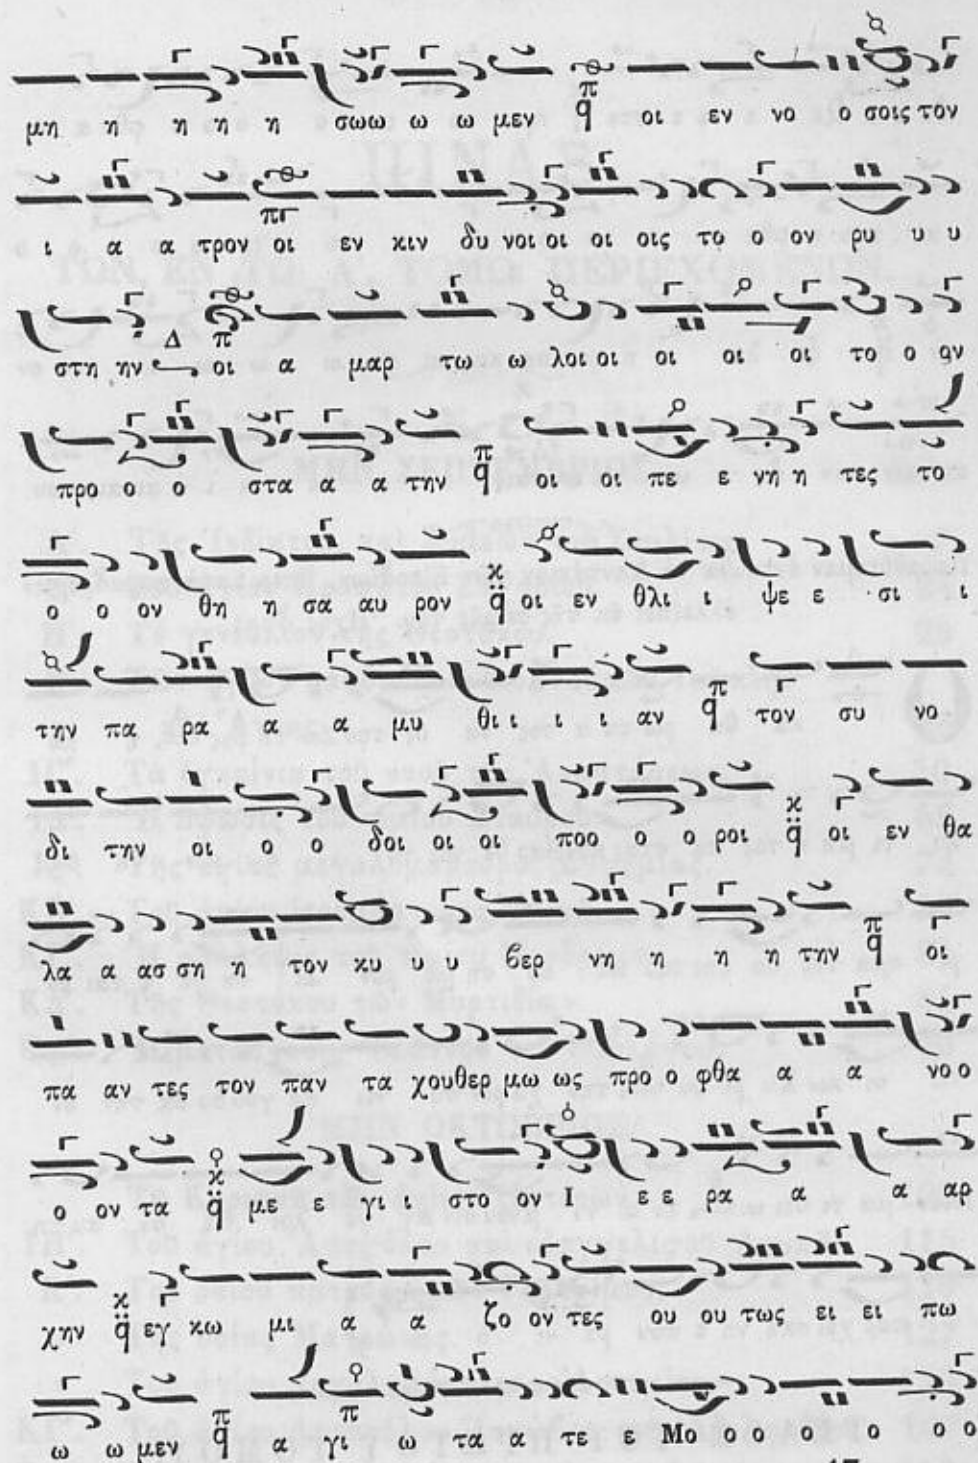 μη η η η η σωω ω ω μεν π q οι εν νο ο σοις τον
ι α α τρον οι εν κιν δυ νοι οι οι οις το ο ον ρυ υ υ
στη ην Δ π οι α μαρ τω ω λοι οι οι οι οι το ο ον
προ ο ο στα α α την π q οι οι πε ε νη η τες το
ο ο ον θη η σα αυ ρον κ q οι εν θλι ι ψε ε σι ι
την πα ρα α α μυ θι ι ι ι αν π q τον συ νο
δι την οι ο ο δοι οι οι ποο ο ο ροι κ q οι εν θα
λα α ασ ση η τον κυ υ υ βερ νη η η η την π q οι
πα αν τες τον παν τα χουθερ μω ως προ ο φθα α α νο ο
ο ον τα κ q με ε γι ι στο ον Ι ε ε ρα α α αρ
χην κ q εγ κω μι α α ζο ον τες ου ου τως ει ει πω
ω ω μεν π q α γι ω τα α τε ε Μο ο ο ο ο ο ο